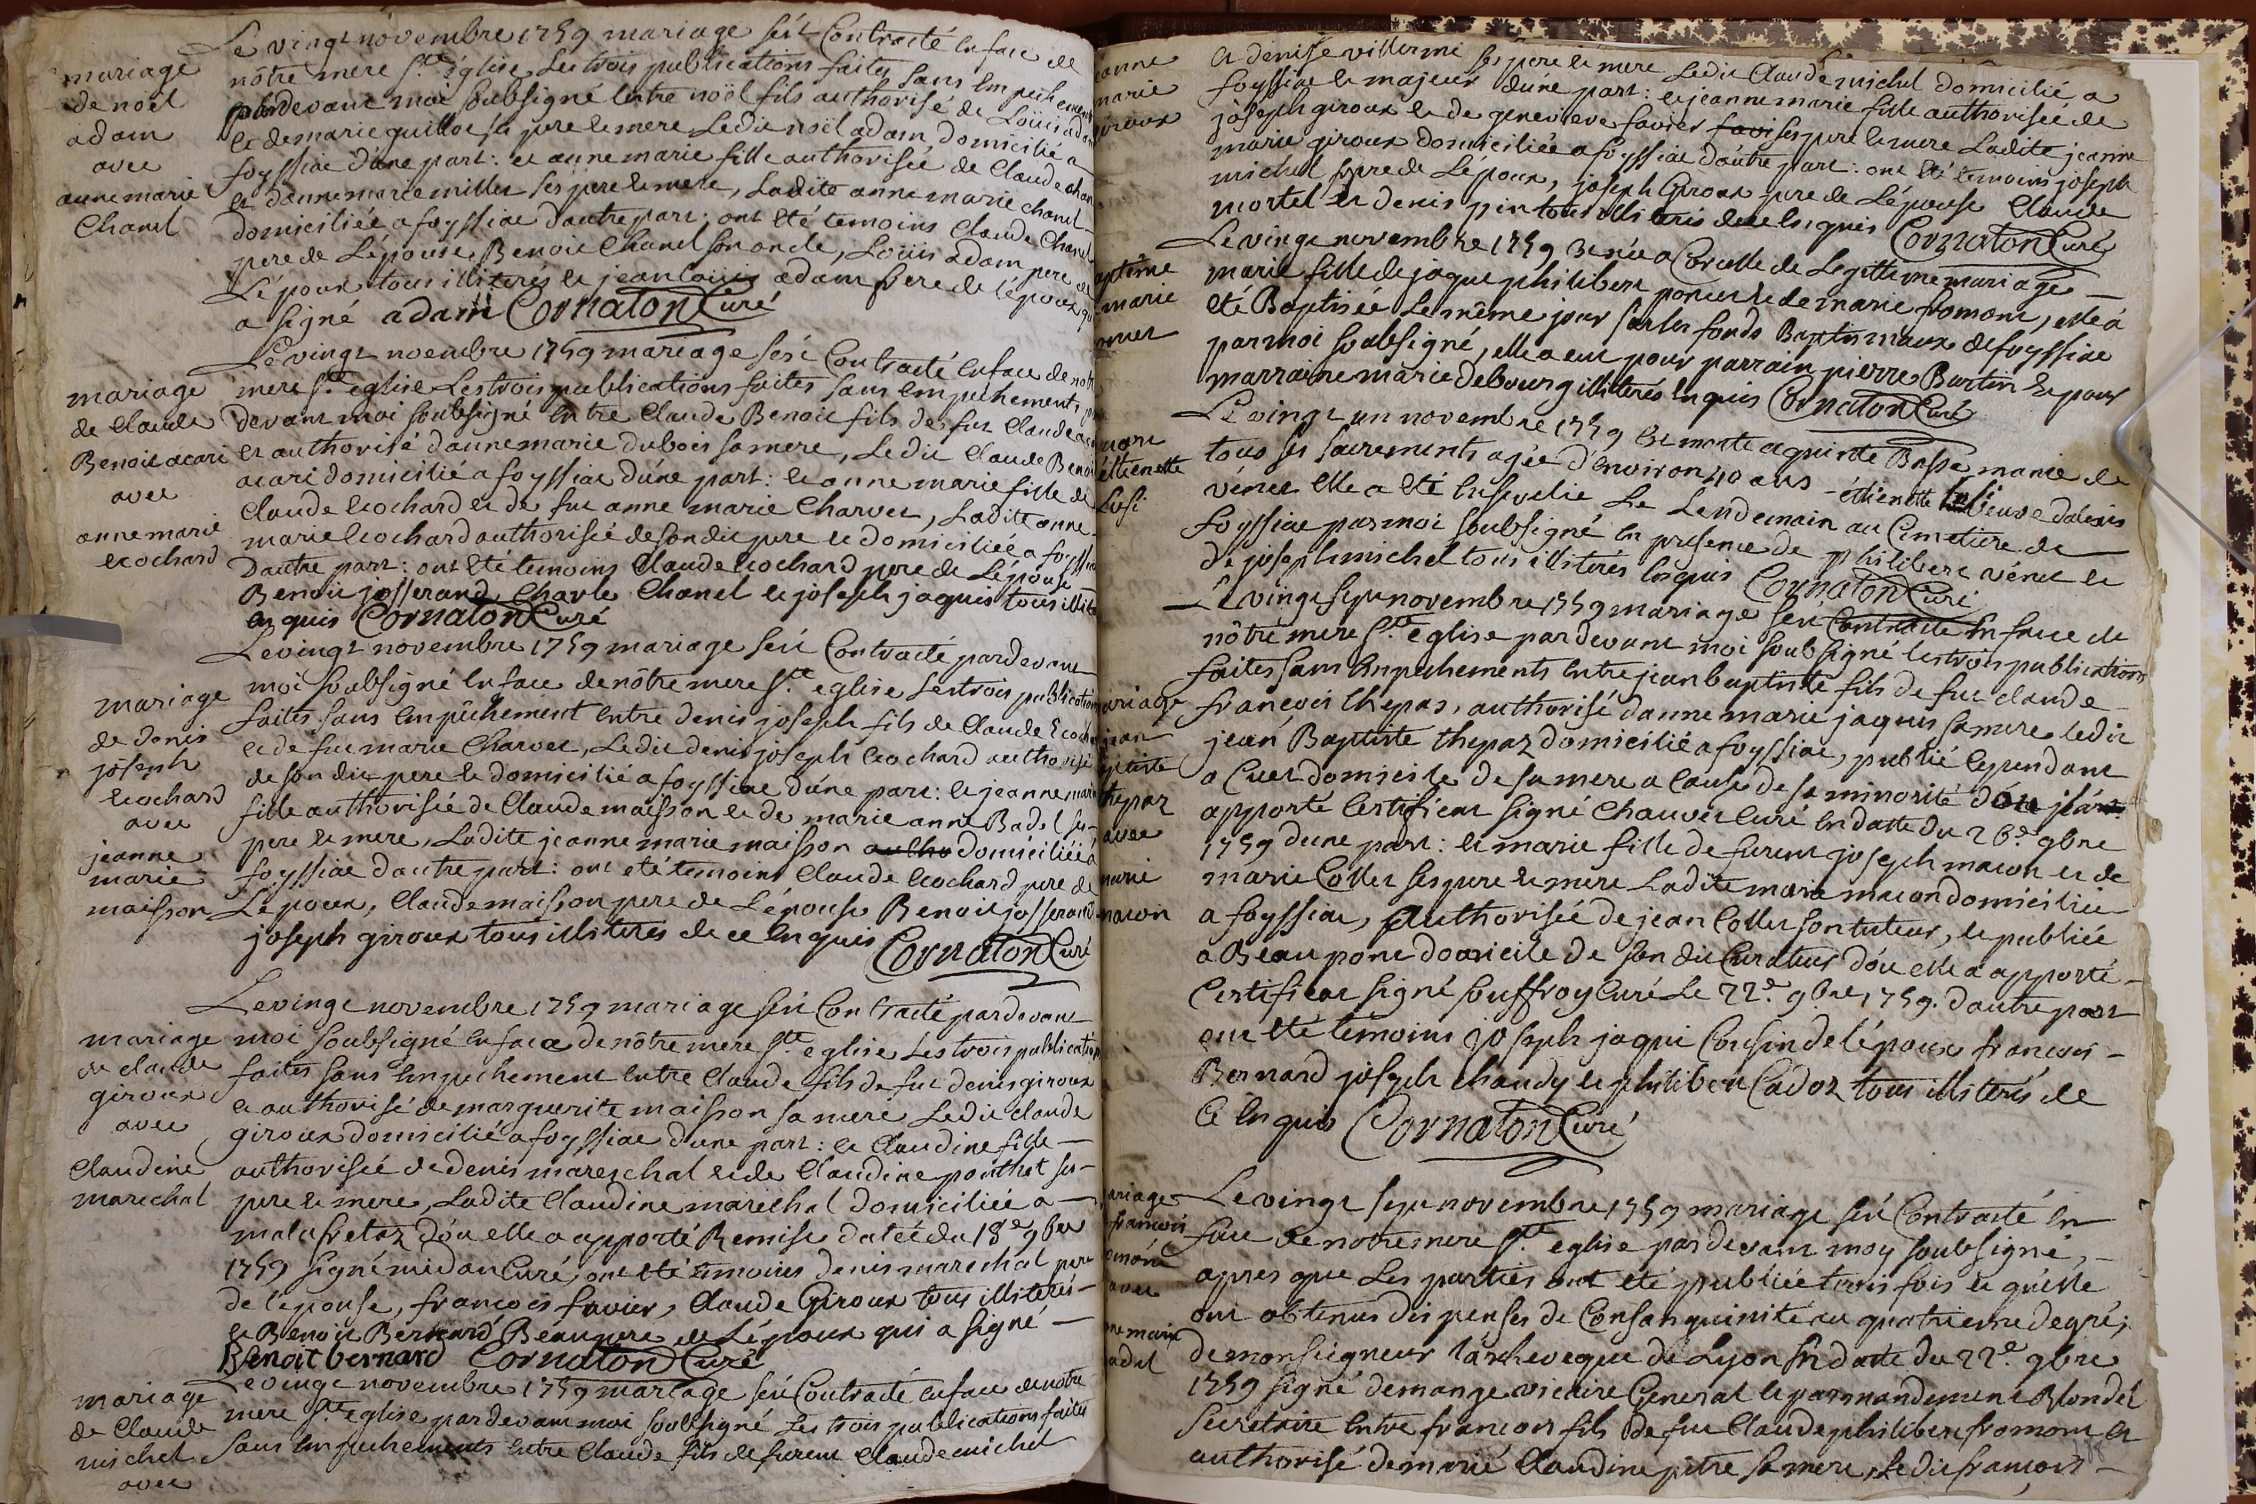 Le vingt novembre 1759 mariage s'est Contracté en face de
nôtre mere Ste église Les trois publications faites sans empechement
pardevant moi soubsigné entre noël fils authorisé de Loüis adam
et de marie guillot ses pere et mere Ledit noël adam domicilié a
foyssiac d'une part: et anne marie fille authorisée de Claude chanel
et danne marie millet ses pere et mere, Ladite anne marie chanel
domiciliée a foyssiac dautre part: ont été temoins Claude Chanel
pere de Lépouse, Benoit Chanel son oncle, Loüis adam pere de
Lépoux tous illiterés et jean louis adam frere de lépoux qui
a signé adam Cornaton Curé
mariage
de noël
adam
avec
anne marie
Chanel
Le vingt novembre 1759 mariage s'est Contracté en face de notre
mere Ste eglise Les trois publications faites sans empechements par
devant moi soubsigné entre Claude Benoit fils de fut Claude acari
et authorisé danne marie dubois sa mere, Ledit Claude Benoit
acari domicilié a foyssiac d'une part: et anne marie fille de
Claude ecochard et de fut anne marie Charvet, Ladite anne
marie Ecochard authorisée de son dit pere et domiciliée a foyssiac
Dautre part: ont été temoins Claude Ecochard pere de Lépouse
Benoit josserand, Charle Chanel et joseph jaquis tous illiterés
enquis Cornaton Curé
mariage
de Claude
Benoit acari
avec
anne marie
ecochard
Le vingt novembre 1759 mariage s'est Contracté pardevant
moi soubsigné en face de nôtre mere Ste eglise Les trois publications
faites sans empêchement entre denis joseph fils de Claude Ecochard
et de fut marie Charvet, Ledit denis joseph Ecochard authorisé
de son dit pere et domicilié a foyssiac d'une part: et jeanne marie
fille authorisée de Claude maisson et de marie anne Badel ses
pere et mere, Ladite jeanne marie maisson autho domiciliée a
foyssiac dautre part: ont été temoins Claude Ecochard pere de
Lépoux, Claude maisson pere de Lépouse Benoit josserand
joseph giroux tous illiterés de ce enquis Cornaton Curé
mariage
de denis
joseph
Ecochard
avec
jeanne
marie
maisson
Le vingt novembre 1759 mariage s'est Contracté pardevant
moi soubsigné en face de nôtre mere Ste eglise Les trois publications
faites sans empechement entre Claude fils de fut denis giroux
et authorisé de marguerite maisson sa mere Ledit claude
giroux domicilié a foyssiac d'une part: et Claudine fille
authorisée de denis mareschal et de Claudine ponthet ses
pere et mere, Ladite Claudine mareschal domiciliée a
malafretaz d'ou elle a apporté Remise datée du 18e 9bre
1759 signé midan Curé, ont été temoins denis marechal pere
de lépouse, francois favier, Claude Giroux tous illiterés
et Benoit Bernard Beaupere de Lépoux qui a signé
Benoit bernard Cornaton Curé
mariage
de claude
giroux
avec
Claudine
marechal
Le vingt novembre 1759 mariage s'est Contracté en face de notre
mere Ste eglise pardevant moi soubsigné Les trois publications faites
sans empechements entre Claude fils de furent Claude michel
mariage
de Claude
michel
avec
et denise villermé ses pere et mere Ledit Claude michel domicilié a
foyssiac et majeur d'une part: et jeanne marie fille authorisée de
joseph giroux et de genevieve favier favi ses pere et mere Ladite jeanne
marie giroux domiciliée a foyssiac dautre part: ont été temoins joseph
michel frere de Lépoux, joseph Giroux pere de Lépouse Claude
mortel et denis pin tous illiterés de ce enquis Cornaton Curé
anne
marie
giroux
Le vingt novembre 1759 Est née a Corcelle de Legittime mariage
marie fille de jaque philibert poncet et de marie fromont, elle a
eté Baptisée Le même jour sur les fonds Baptismaux de foyssiac
par moi soubsigné, elle a eut pour parrain pierre Burtin et pour
marraine marie debourg illiterés enquis Cornaton Curé
aptême
marie
oncet
Le vingt un novembre 1759 Est morte a quinte Basse munie de
tous ses sacrements agée d'environ 40 ans étiennette Lusi veuve dalexis
vénet elle a été Ensevelie Le Lendemain au Cimetiere de
foyssiac par moi soubsigné en presence de philibert vénet et
de joseph michel tous illiterés enquis Cornaton Curé
mort
étienette
Lusi
Le vingt sept novembre 1759 mariage s'est Contracté en face de
nôtre mere Ste eglise pardevant moi soubsigné Les trois publications
faites sans empechements entre jean baptiste fils de fut claude
françois thepaz, authorisé danne marie jaquis sa mere Ledit
jean Baptiste thepaz domicilié a foyssiac, publié Cependant
a Cuet domicile de sa mere a cause de sa minorité dou il a
apporté Certificat signé Chauvet Curé en datte du 26e 9bre
1759 d'une part: et marie fille de furent joseph macon et de
marie Collet ses pere et mere Ladite marie macon domiciliée
a foyssiac, authorisée de jean Collet son tuteur, et publiée
a Beaupont domicile de son dit Curateur d'ou elle a apporté
Certificat signé souffroy Curé Le 22e 9bre 1759. dautre part
ont été temoins joseph jaqui Cousin de lépoux francois
Bernard joseph chaudy et philibert Cadoz tous illiterés de
Ce enquis Cornaton Curé
ariage
jean
aptiste
thepaz
avec
marie
macon
Le vingt sept novembre 1759 mariage s'est Contracté en
face de notre mere Ste eglise pardevant moy soubsigné,
apres que Les parties ont été publiée trois fois et qu'elle
ont obtenus dispenses de Consanguinité au quatrieme degré,
de monseigneur Larcheveque de Lyon En datte du 22e 9bre
1759 signé demange vicaire General et par mandement Blondel
secretaire entre francois fils de fut Claude philibert fromont et
authorisé de marie Claudine pitre sa mere, Ledit francois
ariage
francois
omont
avec
adel